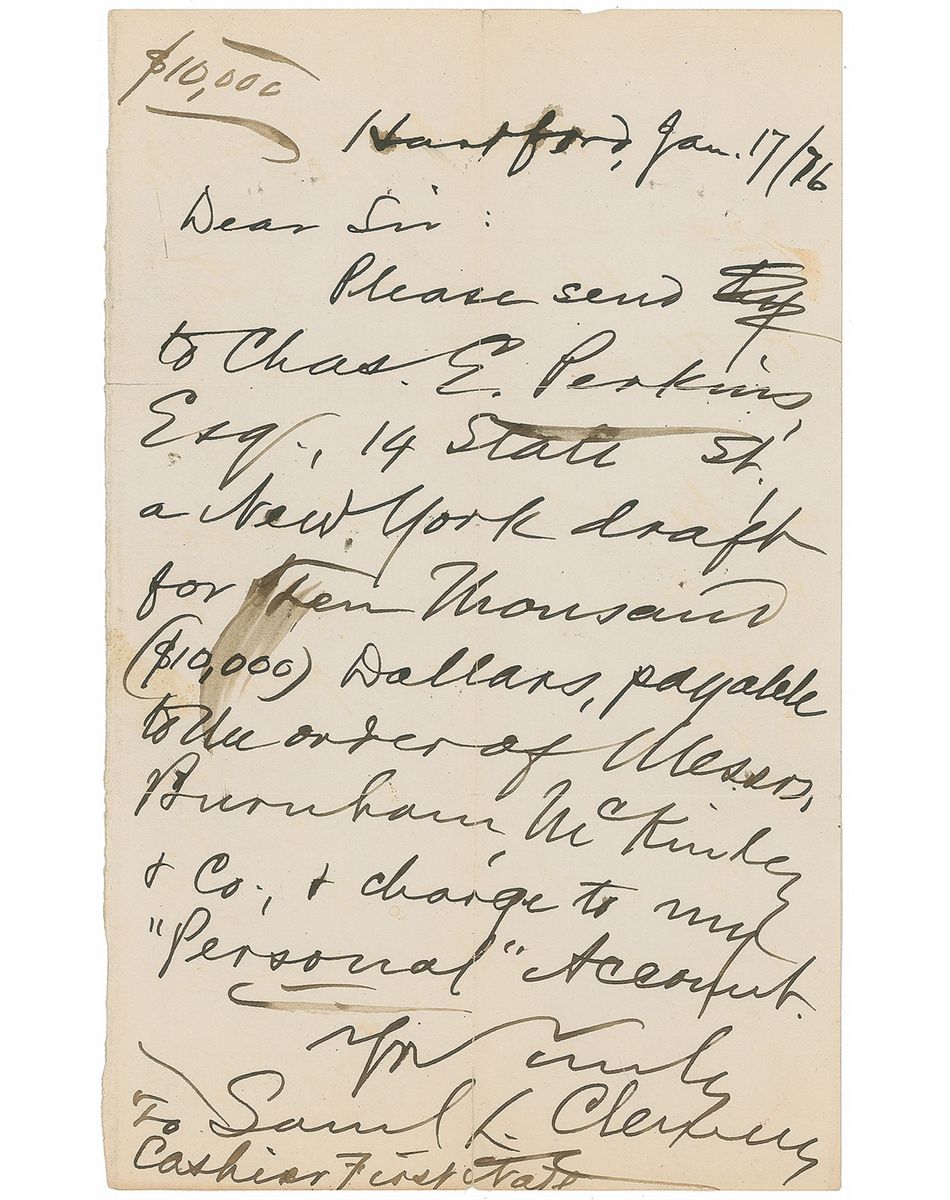 $10,000
Hartford, Jan. 17/76
Dear Sir:
Please send
to Chas. E. Perkins,
Esq., 14 State St.,
a New York draft
for Ten Thousand
($10,000) Dollars, payable
to the order of Messrs.
Burnham, McKinley
& Co., & charge to my
"Personal" Account.
Yrs Truly
Saml. L. Clemens
To
Cashier First Natl